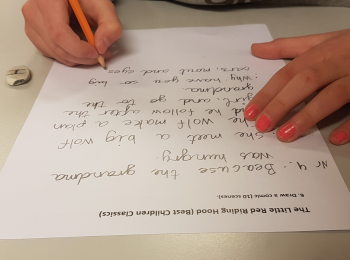 The Little Red Riding Hood (Best Children Classics)
6. Draw a comic (10 scenes)
Nr 4. Beacuse the grandma
was hungry.
She meet a big wolf
The wolf make a plan
he follow after the
girl, and go to the
grandma.
: Why have you so big
ears, nout and eyes